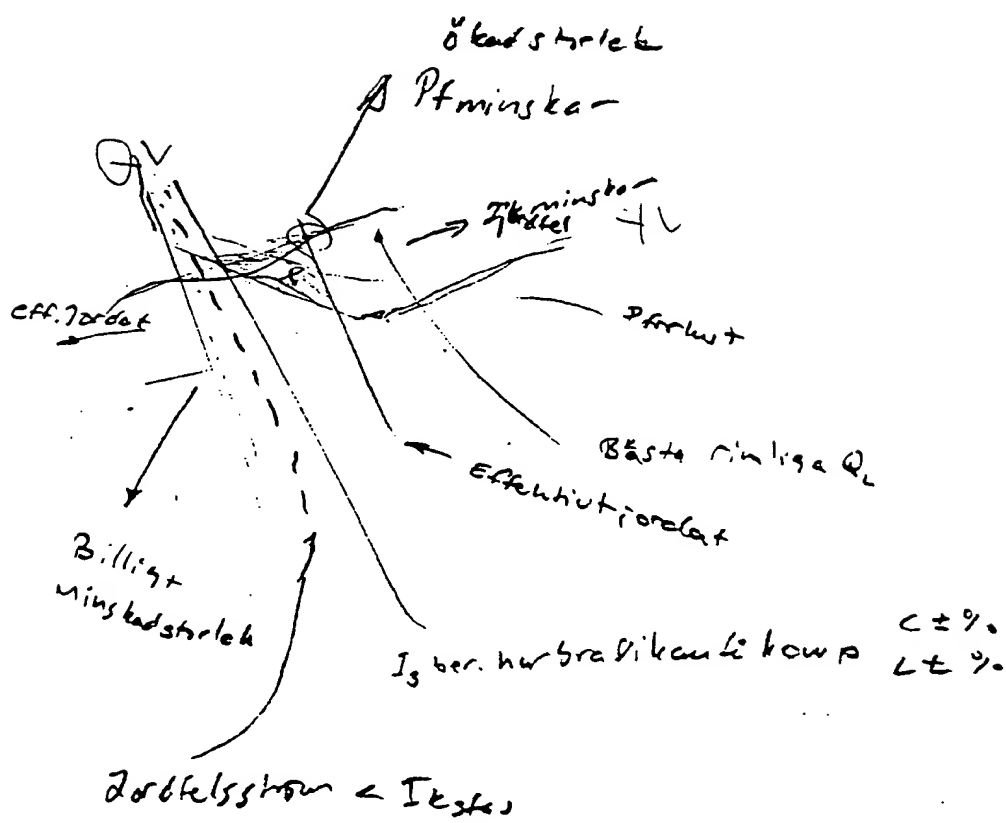 Ökad storlek
Pf minskar
Ik minskar
jordfel
+L
eff. Jordat
Pförlust
Bästa rimliga QL
Effektivt jordat
Billigt
minskad storlek
I3 ber. hur bra vi kan komp C ± %
L ± %
Jordfelsström <